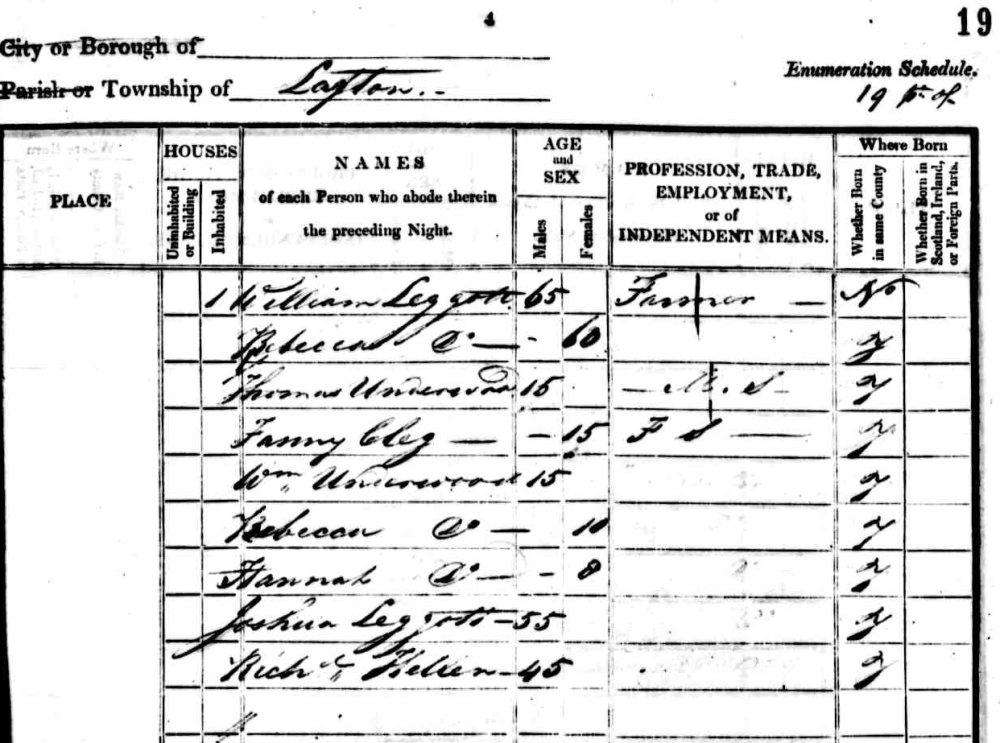 4
19
City or Borough of
Parish or Township of Laxton
Enumeration Schedule.
19
PLACE
HOUSES
Uninhabited or Building
Inhabited
NAMES
of each Person who abode therein
the preceding Night.
AGE
and
SEX
Males
Females
PROFESSION, TRADE,
EMPLOYMENT,
or of
INDEPENDENT MEANS.
Where Born
Whether Born in same County
Whether Born in Scotland, Ireland, or Foreign Parts.
1 William Leggott 65 Farmer — No
Rebecca Do — - 60 y
Thomas Underwood 15 — M. S - y
Fanny Cleg — - 15 F S — y
Wm Underwood 15 y
Rebecca Do — 10 y
Hannah Do — - 8 y
Joshua Leggott - 55 y
Richd - 45 y